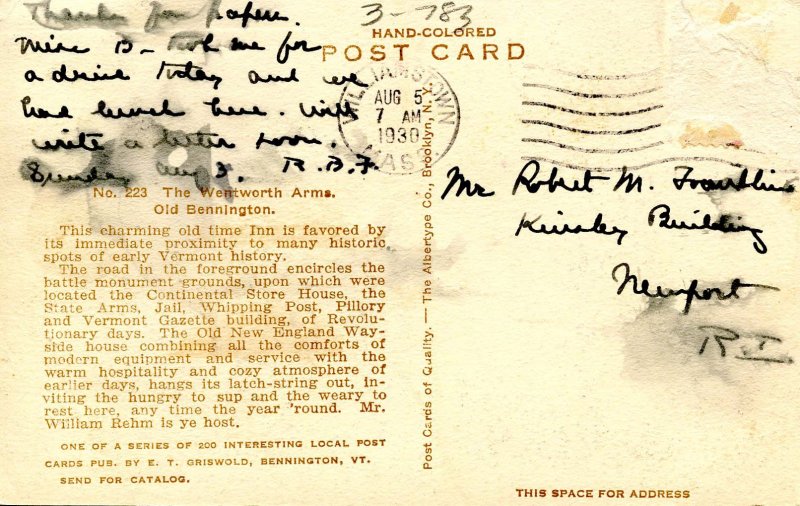 Thanks for papers.
Miss B— took me for
a drive today and we
had lunch here. Will
write a letter soon.
Sunday Aug 3. R.B.F.
3-783
HAND-COLORED
POST CARD
WILLIAMSTOWN
AUG 5
7 AM
1930
MASS.
No. 223 The Wentworth Arms.
Old Bennington.
This charming old time Inn is favored by
its immediate proximity to many historic
spots of early Vermont history.
The road in the foreground encircles the
battle monument grounds, upon which were
located the Continental Store House, the
State Arms, Jail, Whipping Post, Pillory
and Vermont Gazette building, of Revolu-
tionary days. The Old New England Way-
side house combining all the comforts of
modern equipment and service with the
warm hospitality and cozy atmosphere of
earlier days, hangs its latch-string out, in-
viting the hungry to sup and the weary to
rest here, any time the year 'round. Mr.
William Rehm is ye host.
ONE OF A SERIES OF 200 INTERESTING LOCAL POST
CARDS PUB. BY E. T. GRISWOLD, BENNINGTON, VT.
SEND FOR CATALOG.
Post Cards of Quality. — The Albertype Co., Brooklyn, N. Y.
Mr Robert M. Franklin
Kinsley Building
Newport
R.I.
THIS SPACE FOR ADDRESS